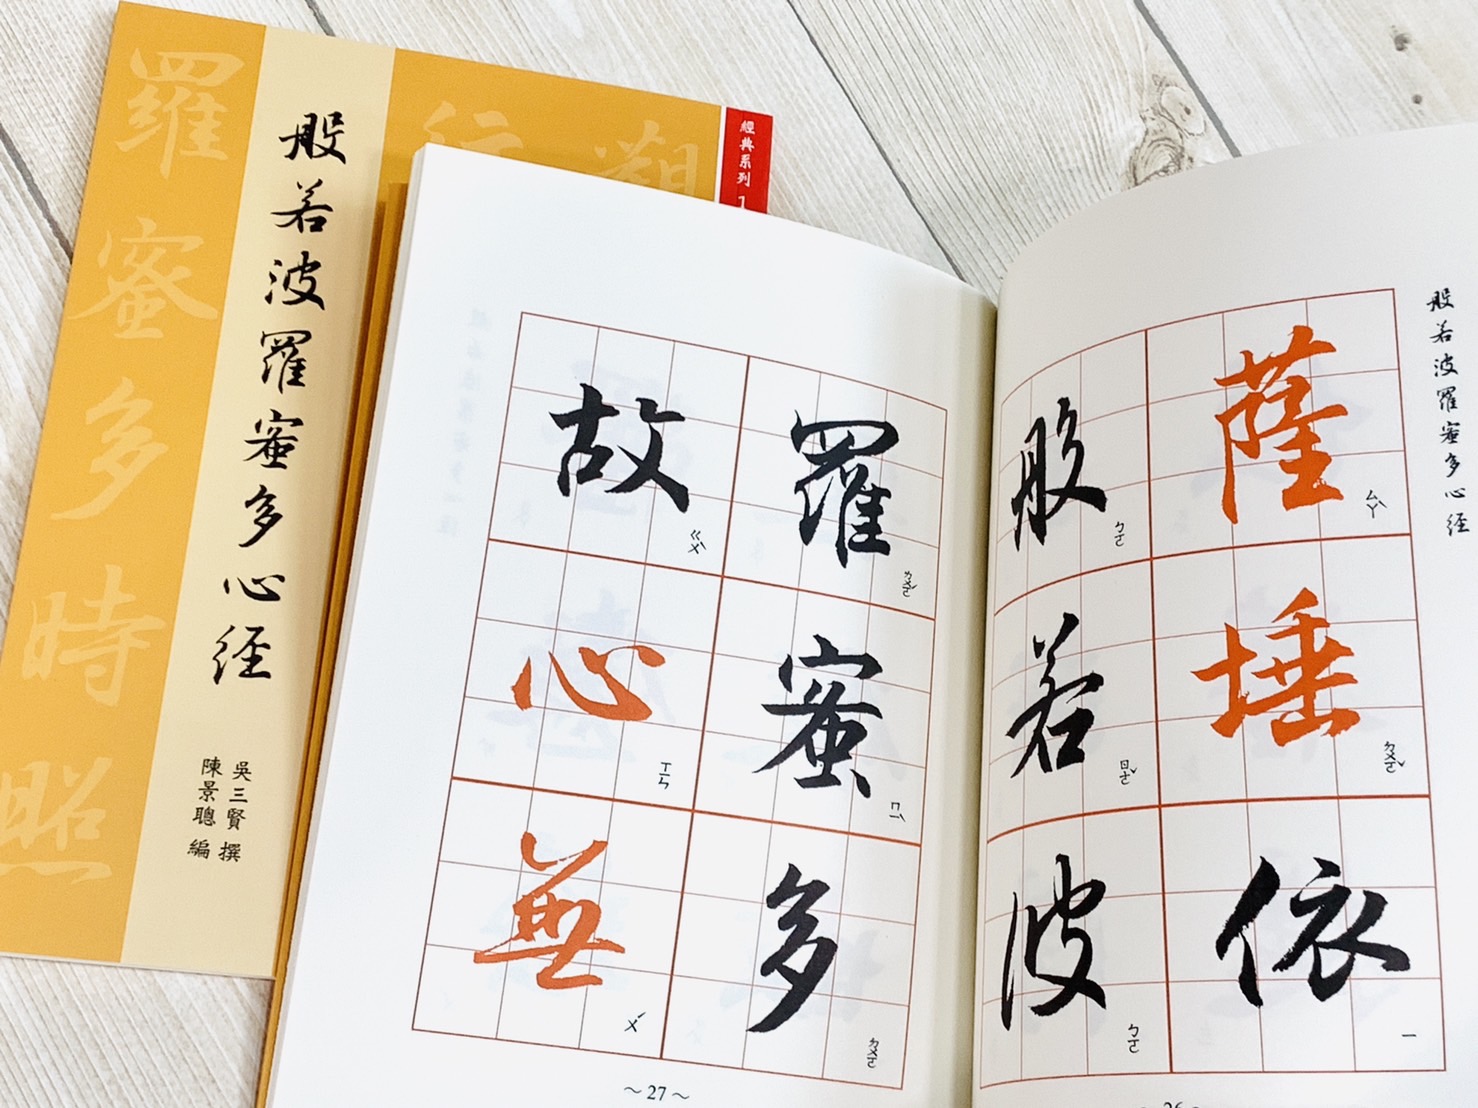 般若波羅蜜多心經
吳三賢 撰
陳景聰 編
經典系列 1
羅蜜多時照
行
觀
般若波羅蜜多心經
薩埵依
ㄙㄚˋ
ㄉㄨㄛˇ
ㄧ
般若波
ㄅㄛ
ㄖㄜˇ
ㄅㄛ
羅蜜多
ㄌㄨㄛˊ
ㄇㄧˋ
ㄉㄨㄛ
故心無
ㄍㄨˋ
ㄒㄧㄣ
ㄨˊ
~ 27 ~